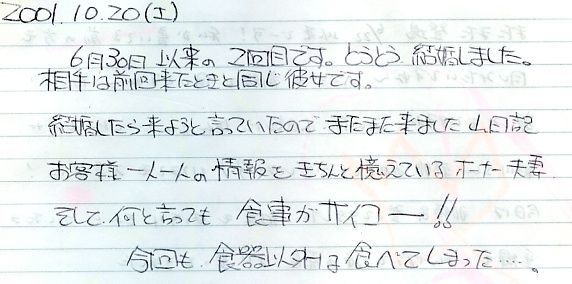 2001.10.20(土)
6月30日以来の2回目です。とうとう結婚しました。
相手は前回来たときと同じ彼女です。
結婚したら来ようと言っていたのでまたまた来ました
お客様一人一人の情報をきちんと憶えているオーナー夫妻
そして何と言っても食事がサイコー!!
今回も、食器以外は食べてしまった…。